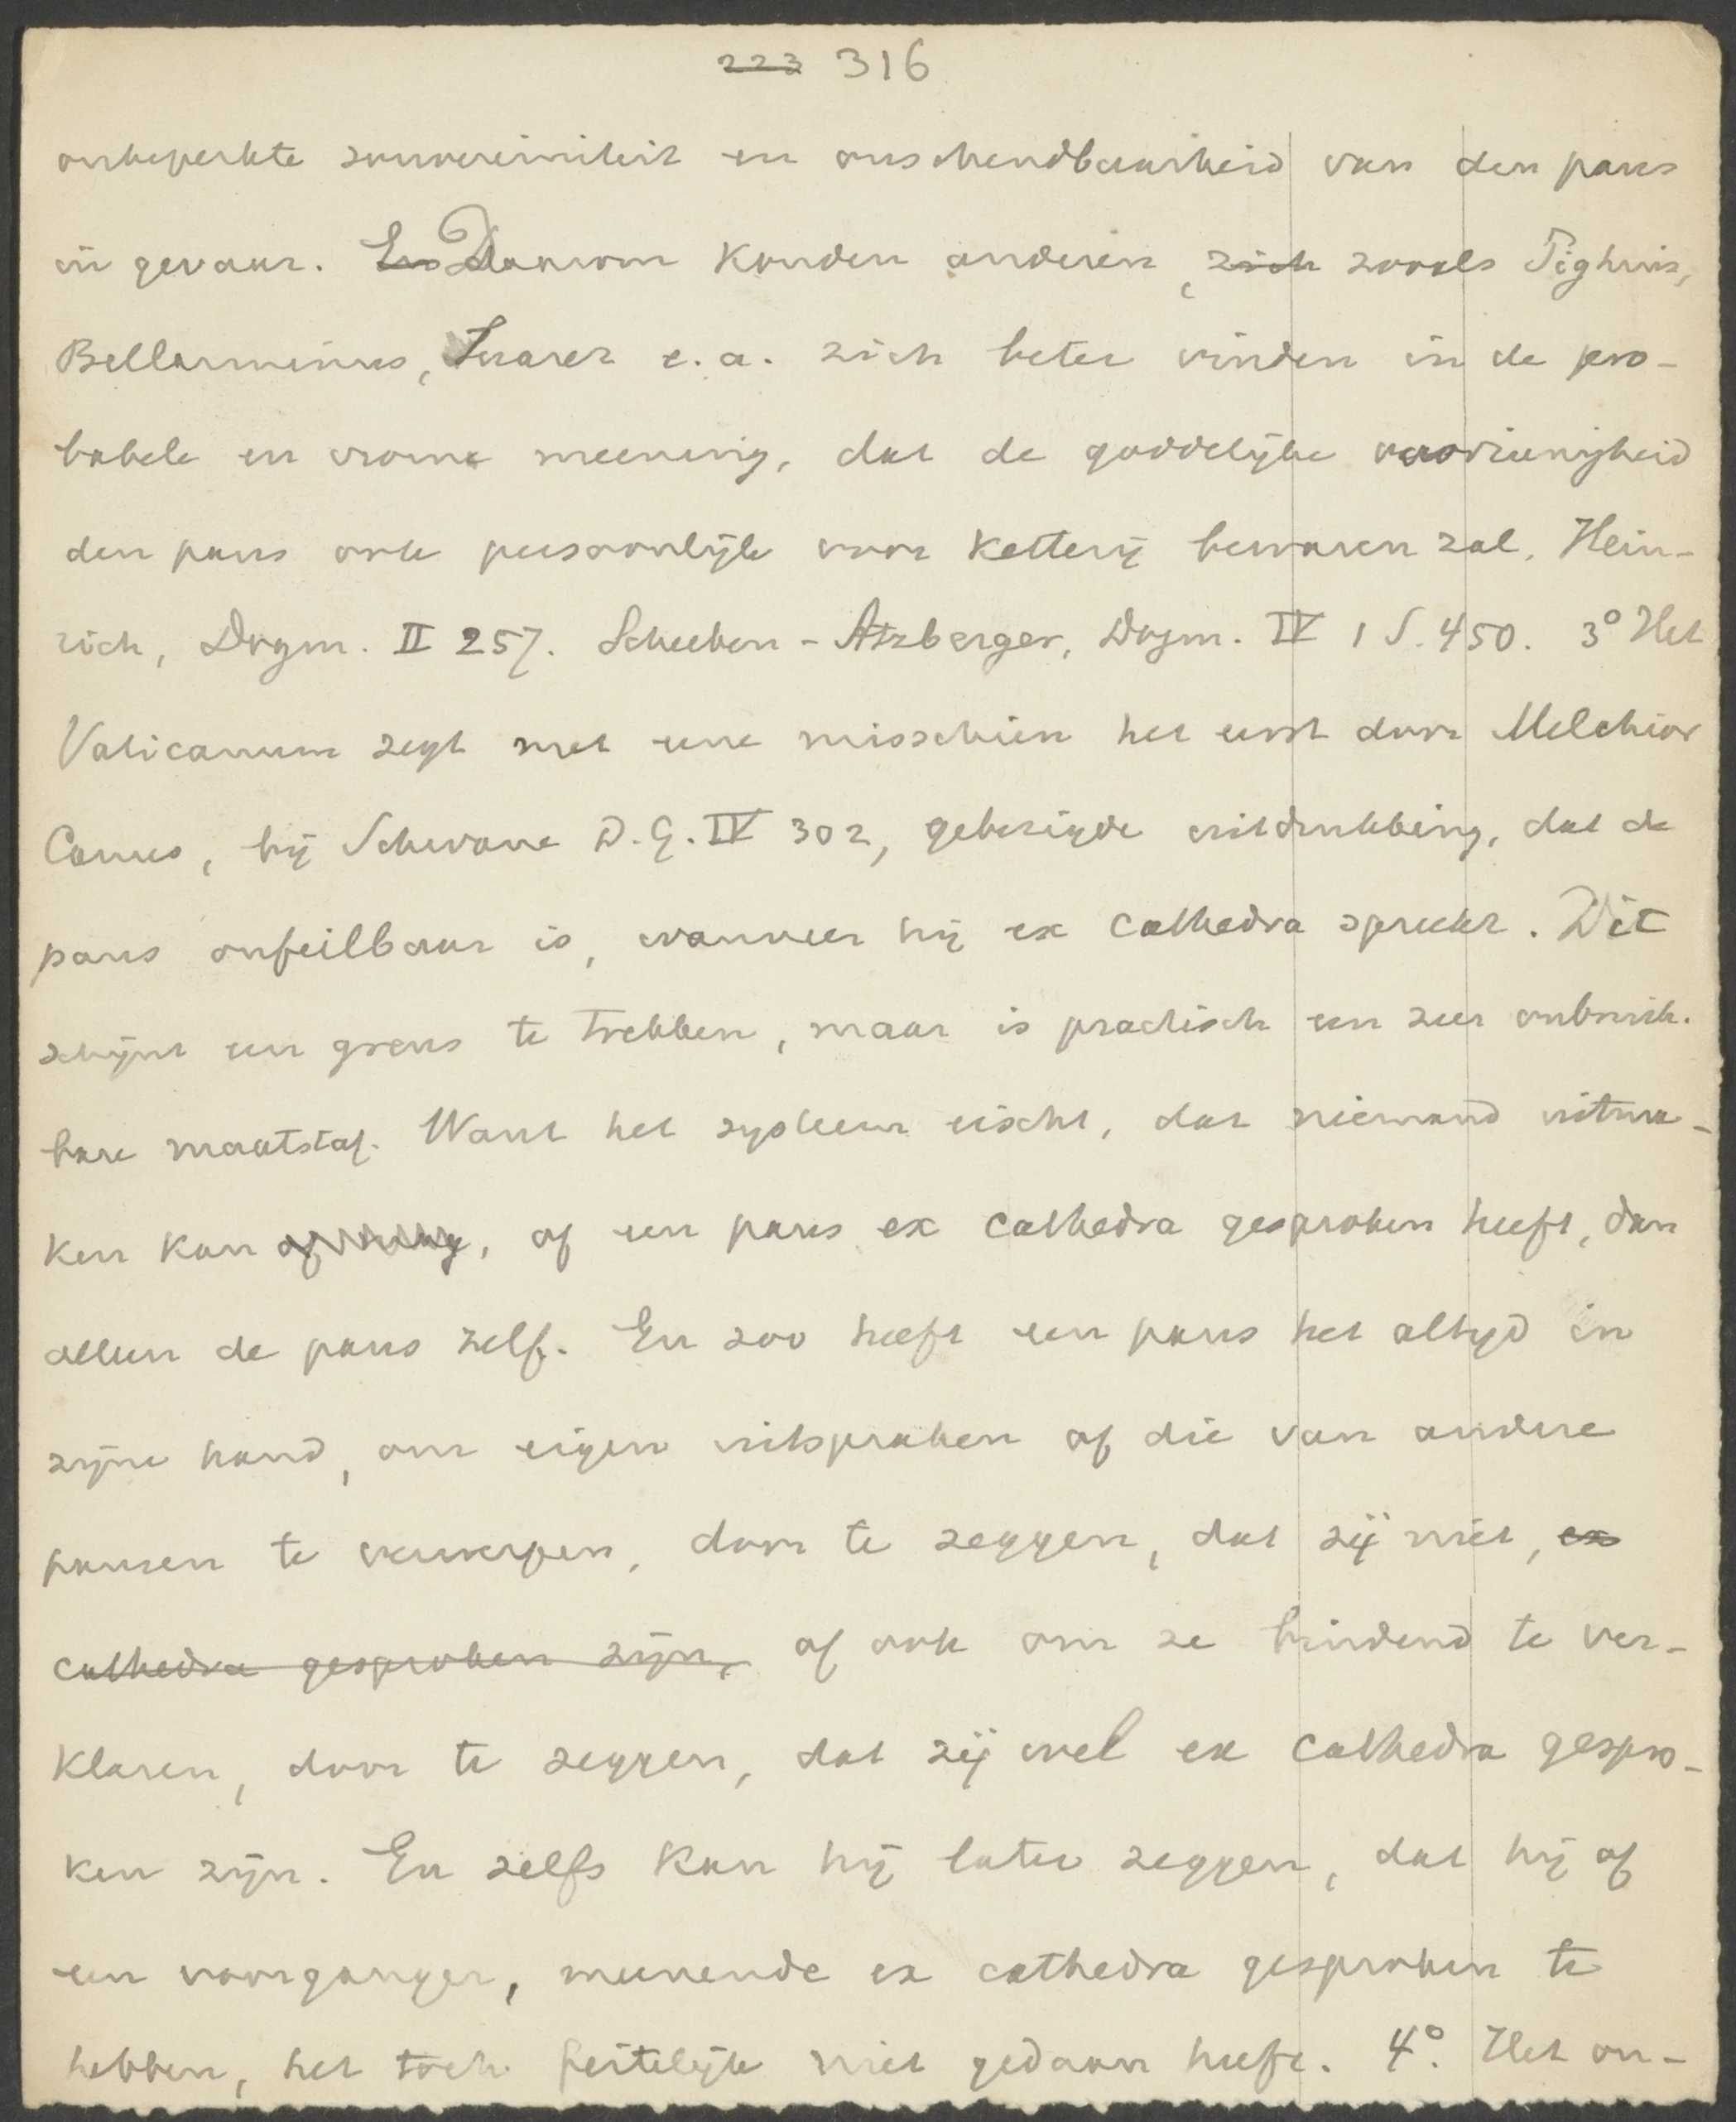 223 316
onbeperkte souvereiniteit en onschendbaarheid van den paus
in gevaar. En Daarom konden anderen, zich zooals Pighius,
Bellarminus, Suarez e.a. zich beter vinden in de pro-
babele en vrome meening, dat de goddelijke voorzienigheid
den paus ook persoonlijk voor ketterij bewaren zal. Hein-
rich, Dogm. II 257. Scheeben-Atzberger, Dogm. IV 1 S. 450. 3° Het
Vaticanum zegt met eene misschien het eerst door Melchior
Canus, bij Schwane D.G. IV 302, gebezigde uitdrukking, dat de
paus onfeilbaar is, wanneer hij ex cathedra spreekt. Dit
schijnt een grens te trekken, maar is practisch een zeer onbruik-
bare maatstaf. Want het systeem eischt, dat niemand uitma-
ken kan, of een paus ex cathedra gesproken heeft, dan
alleen de paus zelf. En zoo heeft een paus het altijd in
zijne hand, om eigen uitspraken of die van andere
pausen te verwerpen, door te zeggen, dat zij niet, ex
cathedra gesproken zijn, of ook om ze bindend te ver-
klaren, door te zeggen, dat zij wel ex cathedra gespro-
ken zijn. En zelfs kan hij later zeggen, dat hij of
een voorganger, meenende ex cathedra gesproken te
hebben, het toch feitelijk niet gedaan heeft. 4°. Het on-